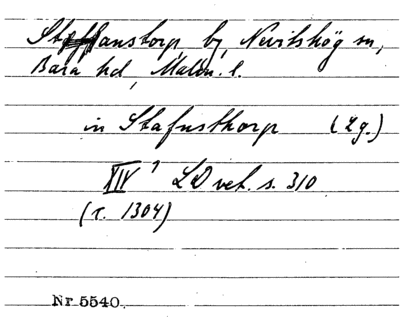 Staffanstorp, by, Nevishög sn,
Bara hd, Malm. l.
in Stafnsthorp (Lg.)
XIV 1 LD vet. s. 310
(c. 1304)
Nr 5540.